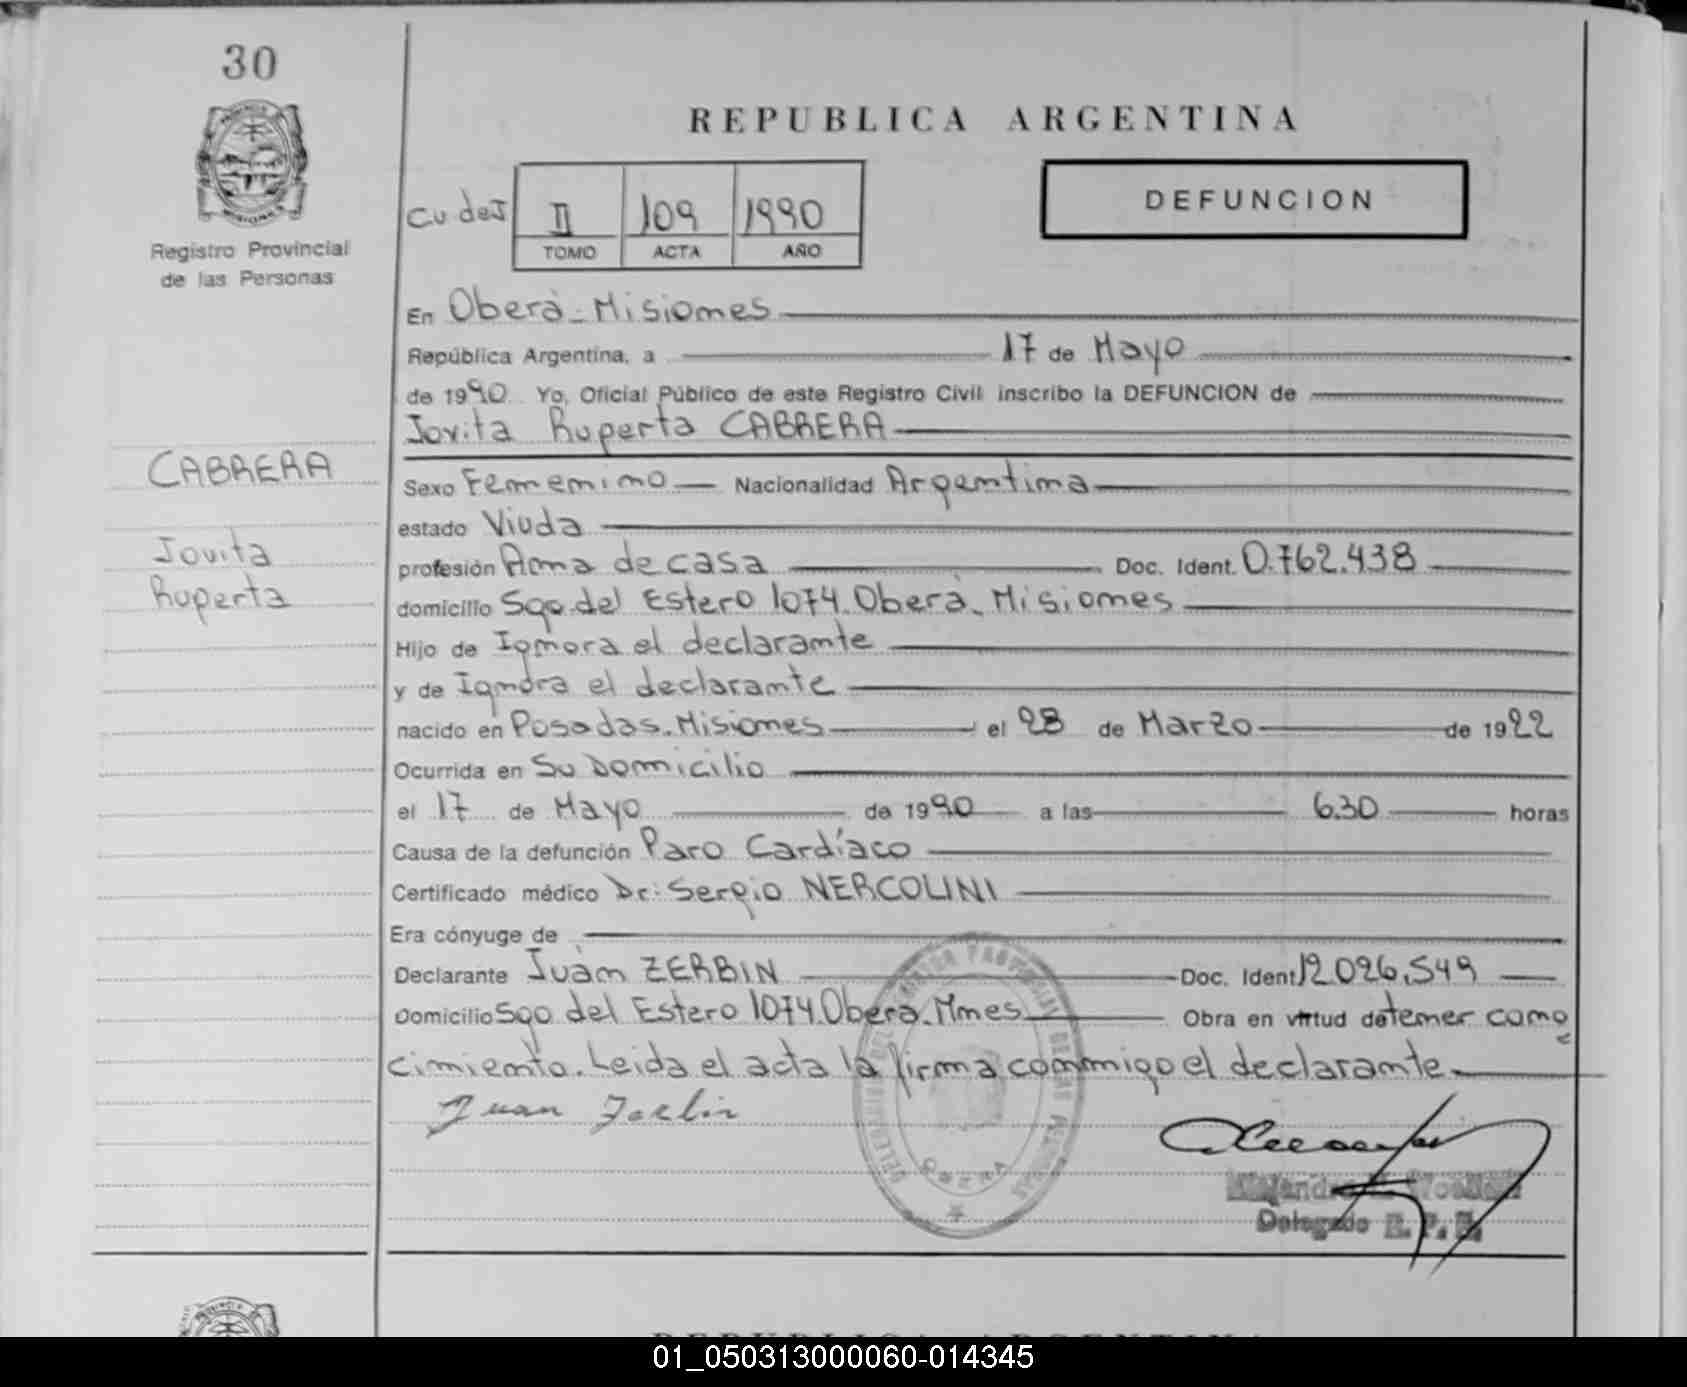 30
REPUBLICA ARGENTINA
Registro Provincial
de las Personas
cu de I
II 109 1990
TOMO ACTA AÑO
DEFUNCION
En Oberà - Misiones
República Argentina, a 17 de Mayo
de 1990 Yo, Oficial Público de este Registro Civil inscribo la DEFUNCION de
Jovita Ruperta CABRERA
CABRERA
Jovita
Ruperta
Sexo Femenino Nacionalidad Argentina
estado Viuda
profesión Ama de casa Doc. Ident. 0.762.438
domicilio Sgo. del Estero 1074. Oberà. Misiones
Hijo de Ignora el declarante
y de Ignora el declarante
nacido en Posadas. Misiones el 28 de Marzo de 1922
Ocurrida en Su Domicilio
el 17 de Mayo de 1990 a las 6.30 horas
Causa de la defunción Paro Cardíaco
Certificado médico Dr: Sergio NERCOLINI
Era cónyuge de
Declarante Juàn ZERBIN Doc. Ident 12.026.549
Domicilio Sgo del Estero 1074. Oberà. Mnes Obra en virtud de tener cono
cimiento. Leida el acta la firma conmigo el declarante
Juan Zerbin
PROVINCIAL DE LAS PERSONAS
OBERA
Delegado R. P. P.
01_050313000060-014345